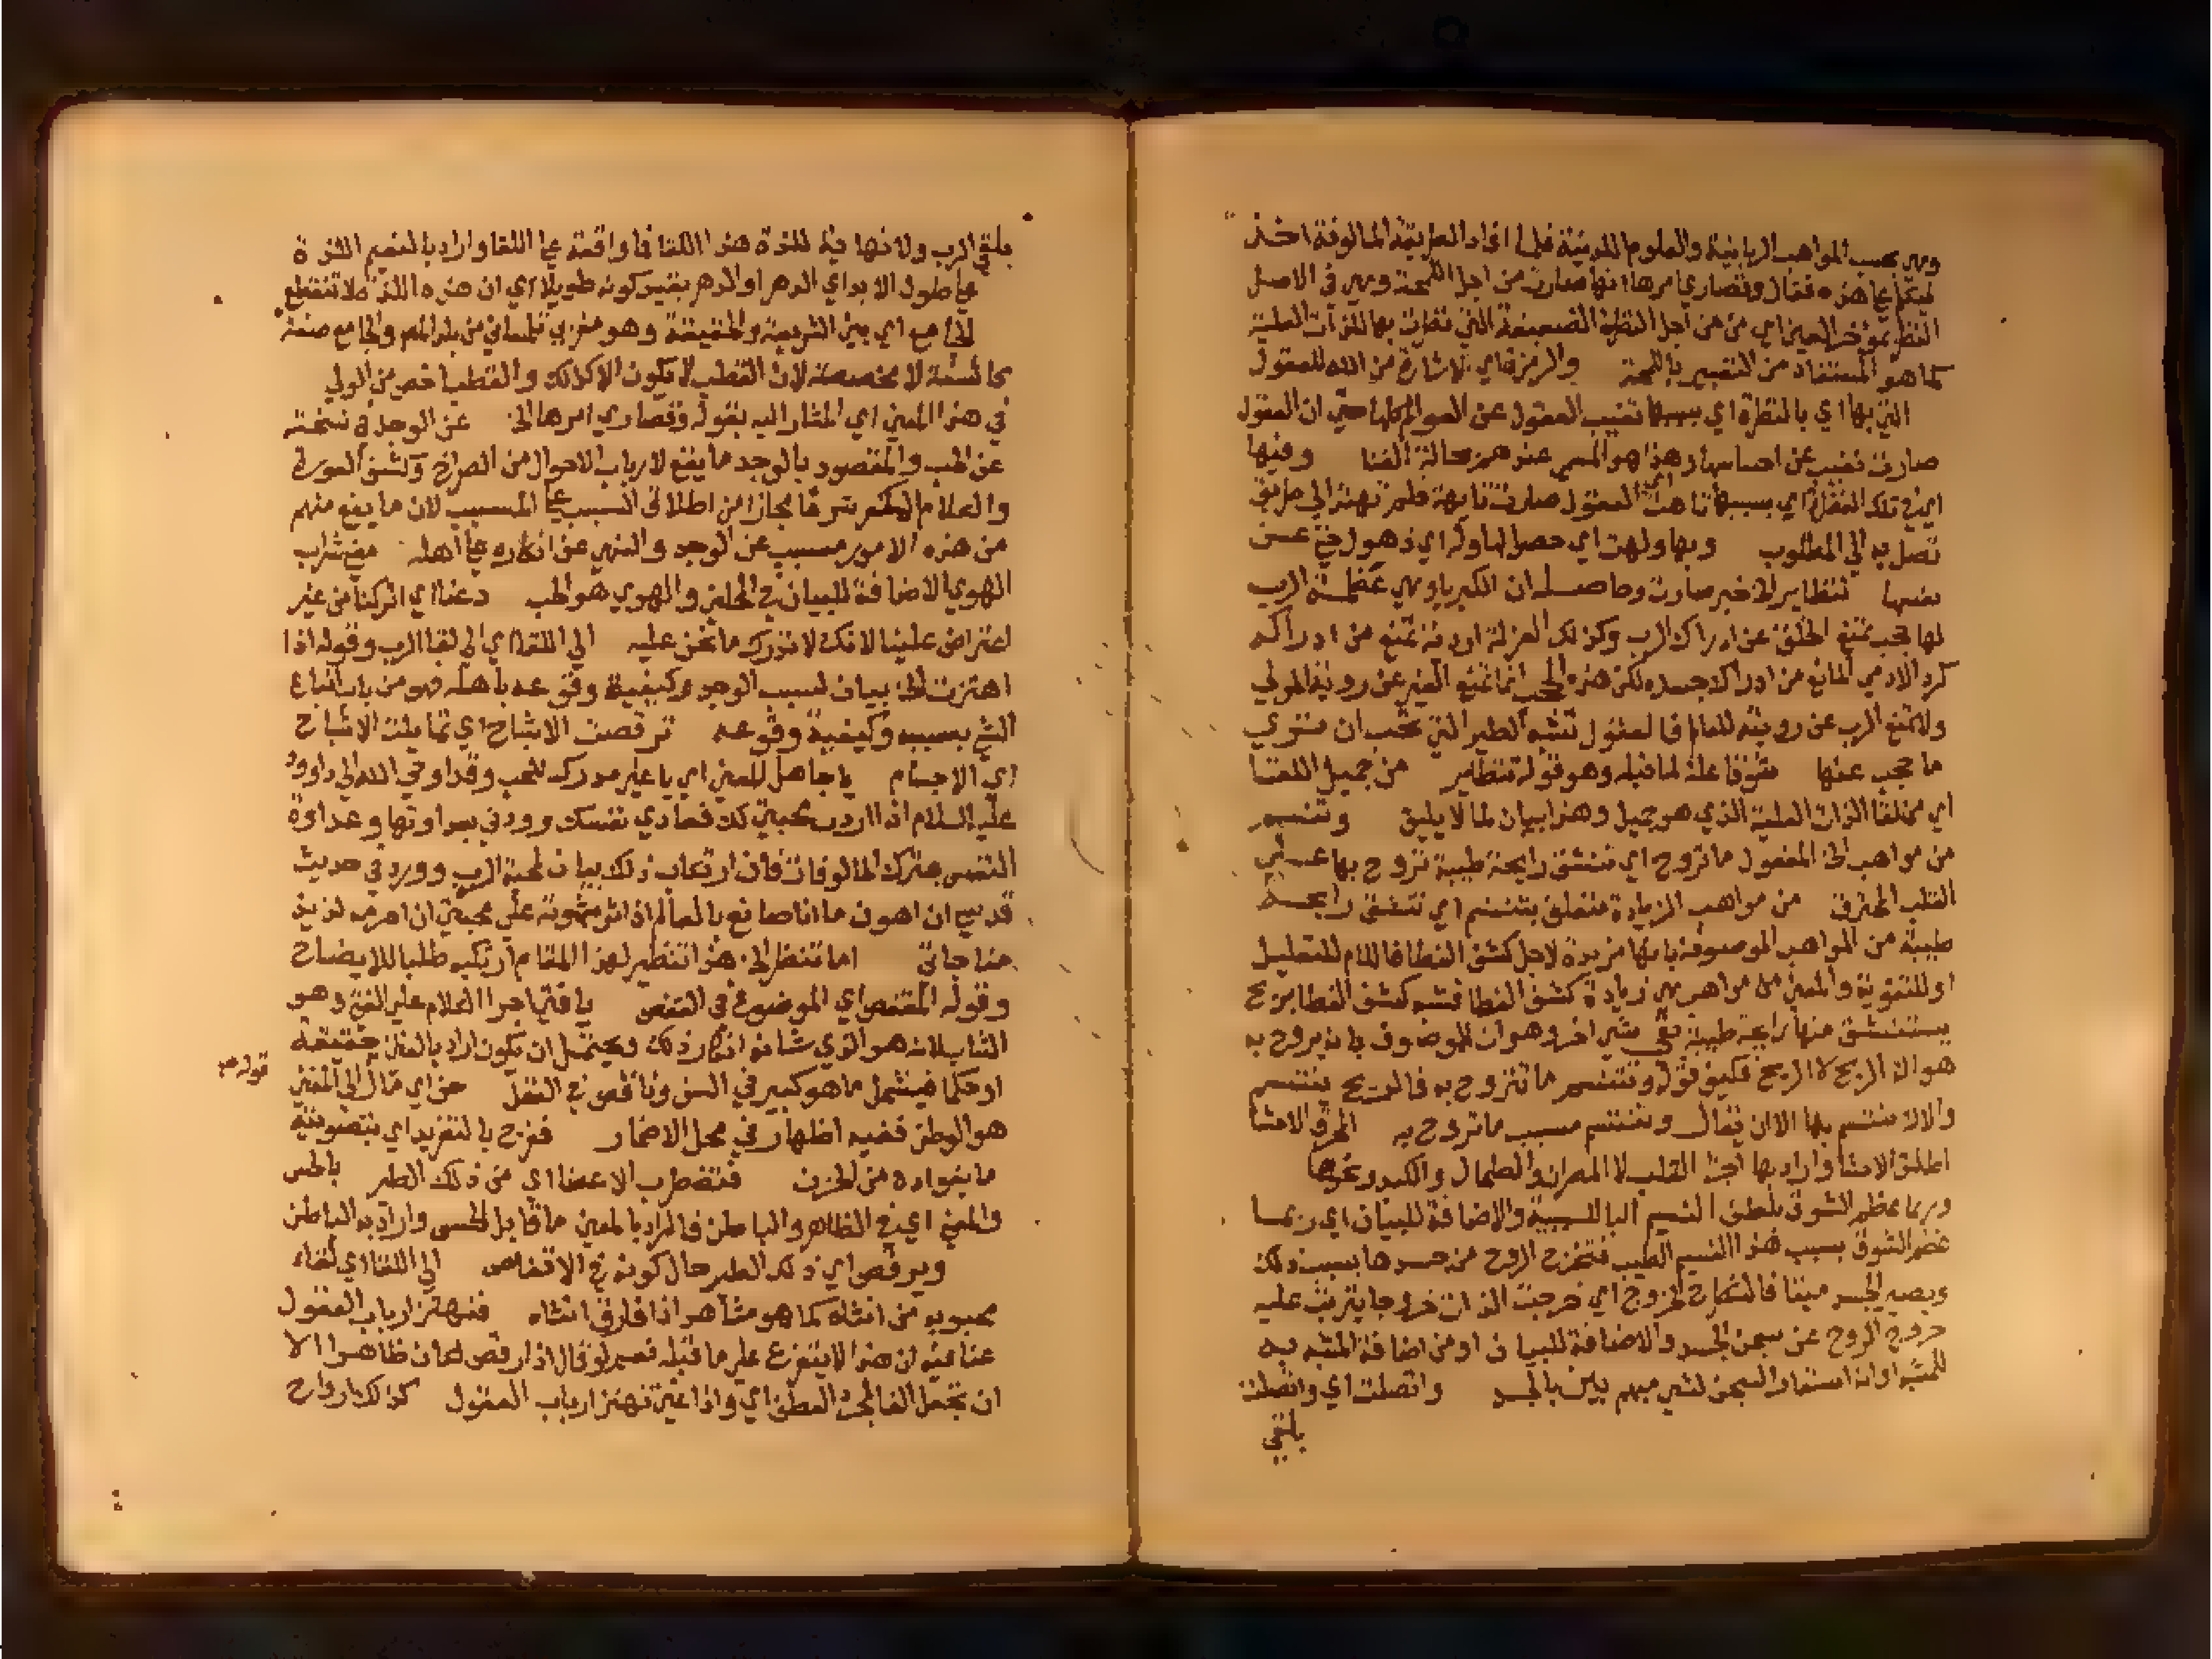 وهي بحسب المواهب الربانية والعلوم اللدنية فلما افاد الطريقة المالوفة اخذ
يتكلم على هذه فقال وقصاري امرها انها صارت من اجل اللمحة وهي في الاصل
النظر بمؤخر العين اي من اجل النظرة الضعيفة التي نظرت بها للذات العلية
كما هو المستفاد من التعبير باللمحة والرمزة اي الاشارة من الله للعقول
التي بها اي بالنظرة اي بسببها تغيب العقول عن العوالم كلها حتى ان العقول
صارت تغيب عن احساسها وهذا هو المسمى عندهم بحالة الفنا وفيها
اي في تلك النظرة اي بسببها تاهت اي العقول صارت تايهة فلم تهتد الى طريق
تصل به الى المطلوب وبها ولهت اي حصل لها وله اي ذهول حتى عن
نفسها لتطاير الخ خبر صارت وحاصله ان الكبريا وهي عظمة الرب
لها حجب تمنع الخلق عن ادراك الرب وكذلك العزلة تمنع من ادراكه
كرد الادمي المانع من ادراك جسده لكن هذه الحجب انما تمنع الغير عن روية المولي
ولا تمنع الرب عن رويته للعالم فالعقول تشبه الطير التي تحب ان تري
ما حجب عنها شوقا علة لما قبله وهو قوله تتطاير من جميل اللقا
اي من لقا الذات العلية الذي هو جميل وهذا بيان لما لا يليق وتنسم
من مواهب الخ المفعول ما تروح اي تنشق رايحة طيبة تروح بها على
القلب المحترق من مواهب الزيادة متعلق بتنسم اي تنشق رايحة
طيبة من المواهب الموصوفة بانها مزيدة لاجل كشف الغطا فاللام للتعليل
او للتقوية والمعنى من مواهب هي زيادة كشف الغطا فشبه كشف الغطا بريح
يستنشق منها رايحة طيبة بقي شي اخر وهو ان الموصوف بانه يروح به
هو الة الريح لا الريح فكيف قوله وتتنسم ما تتروح به فالريح يتنسم
والالة متنسم بها الا ان يقال وتتنسم مسبب ما تروح به المحرق الاحشا
اطلق الاحشا واراد بها القلب لا المصران والطحال والكبد ونحوها
وربما عظم الشوق بطلق النسيم البا للسببية والاضافة للبيان اي ربما
عظم الشوق بسبب هذا النسيم الطيب فتخرج الروح من جسدها بسبب ذلك
ويصير الجسد ميتا خروج اي خرجت الذات خروجا يترتب عليه
خروج الروح عن سجن الجسد والاضافة للبيان او من اضافة المشبه به
للمشبه او انه استعار السجن لشي مبهم بين بالجسد واتصلت اي واتصلت
بلقي
بلقي الرب ولا نهاية للذة هذا اللقا فاوقعه على اللقا واراد بالنعيم اللذة
على طول الابد اي الدهر او الدهر بقيد كونه طويلا اي ان هذه اللذة لا تنقطع
الجامع اي بين الشريعة والحقيقة وهو مغربي تلمساني من بلد والجامع صفة
كاشفة لا مخصصة لان القطب لا يكون الا كذلك والقطب اخص من الولي
في هذا المعنى اي المشار اليه بقوله وقصاري امرها الخ عن الوجد في نسخة
عن الحب والمقصود بالوجد ما يقع لارباب الاحوال من الصراخ وكشف العورة
والكلام المكفر شرعا مجازا من اطلاق السبب على المسبب لان ما يقع منهم
من هذه الامور مسبب عن الوجد والنهي عن انكاره على اهله معنى شراب
الهوي الاضافة للبيان في المحلين والهوي هو الحب دعنا اي اتركنا من غير
اعتراض علينا لانك لا تدرك ما نحن عليه الى اللقا اي الى لقا الرب وقوله اذا
اهتزت الخ بيان لسبب الوجد وكيفية وقوعه باهله فهو من باب اتباع
الشي بسببه وكيفية وقوعه ترقصت الاشباح اي تمايلت الاشباح
اي الاجسام يا جاهل المعنى اي يا غير مدرك للحب وقد اوحي الله الى داوود
عليه السلام اذا اردت محبتي لك فعادي نفسك وودني بعداوتها وعداوة
النفس بترك المالوفات فان ارتكاب ذلك بيان لمحبة الرب وورد في حديث
قدسي ان اهون ما انا صانع بالعالم اذا اثر شهوته على محبتي ان احرمه لذيذ
مناجاتي اما تنظر الخ هذا تنظير لهذا المقام ارتكبه طلبا للايضاح
وقوله المقفص اي الموضوع في القفص يا فتي اجرا الكلام على الفتي وهو
الشاب لانه هو الذي شانه انكار ذلك ويحتمل ان يكون اراد بالفتى حقيقة
او حكما فيشمل ما هو كبير في السن وناقص في العقل حن اي مال الى المغني
قوله حن
هو الوطن ففيه اظهار في محل الاضمار ففرج بالتغريد اي بتصويته
ما بفواده من الحزن فتضطرب الاعضا اي من ذلك الطير بالحس
والمعنى اي في الظاهر والباطن فالمراد بالمعنى ما قابل الحسى واراد به الباطن
ويرقص اي ذلك الطير حال كونه في الاقفاص الى اللقا اي لقاء
محبوبه من انثاه كما هو مشاهد اذا فارق انثاه فتهتز ارباب العقول
عنا فيه ان هذا لا يتفرع على ما قبله نعم لو قال اذا رقص لكان ظاهرا الا
ان تجعل الفا لمجرد العطف اي واذا غنى تهتز ارباب العقول كذلك ارواح